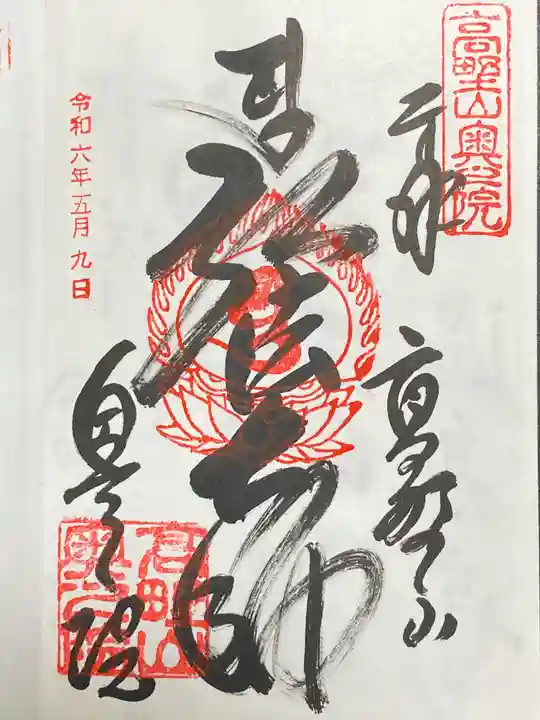 高野山奥之院
奉拝
高野山
弘法大師
奥之院
高野山
奥之院
令和六年五月九日